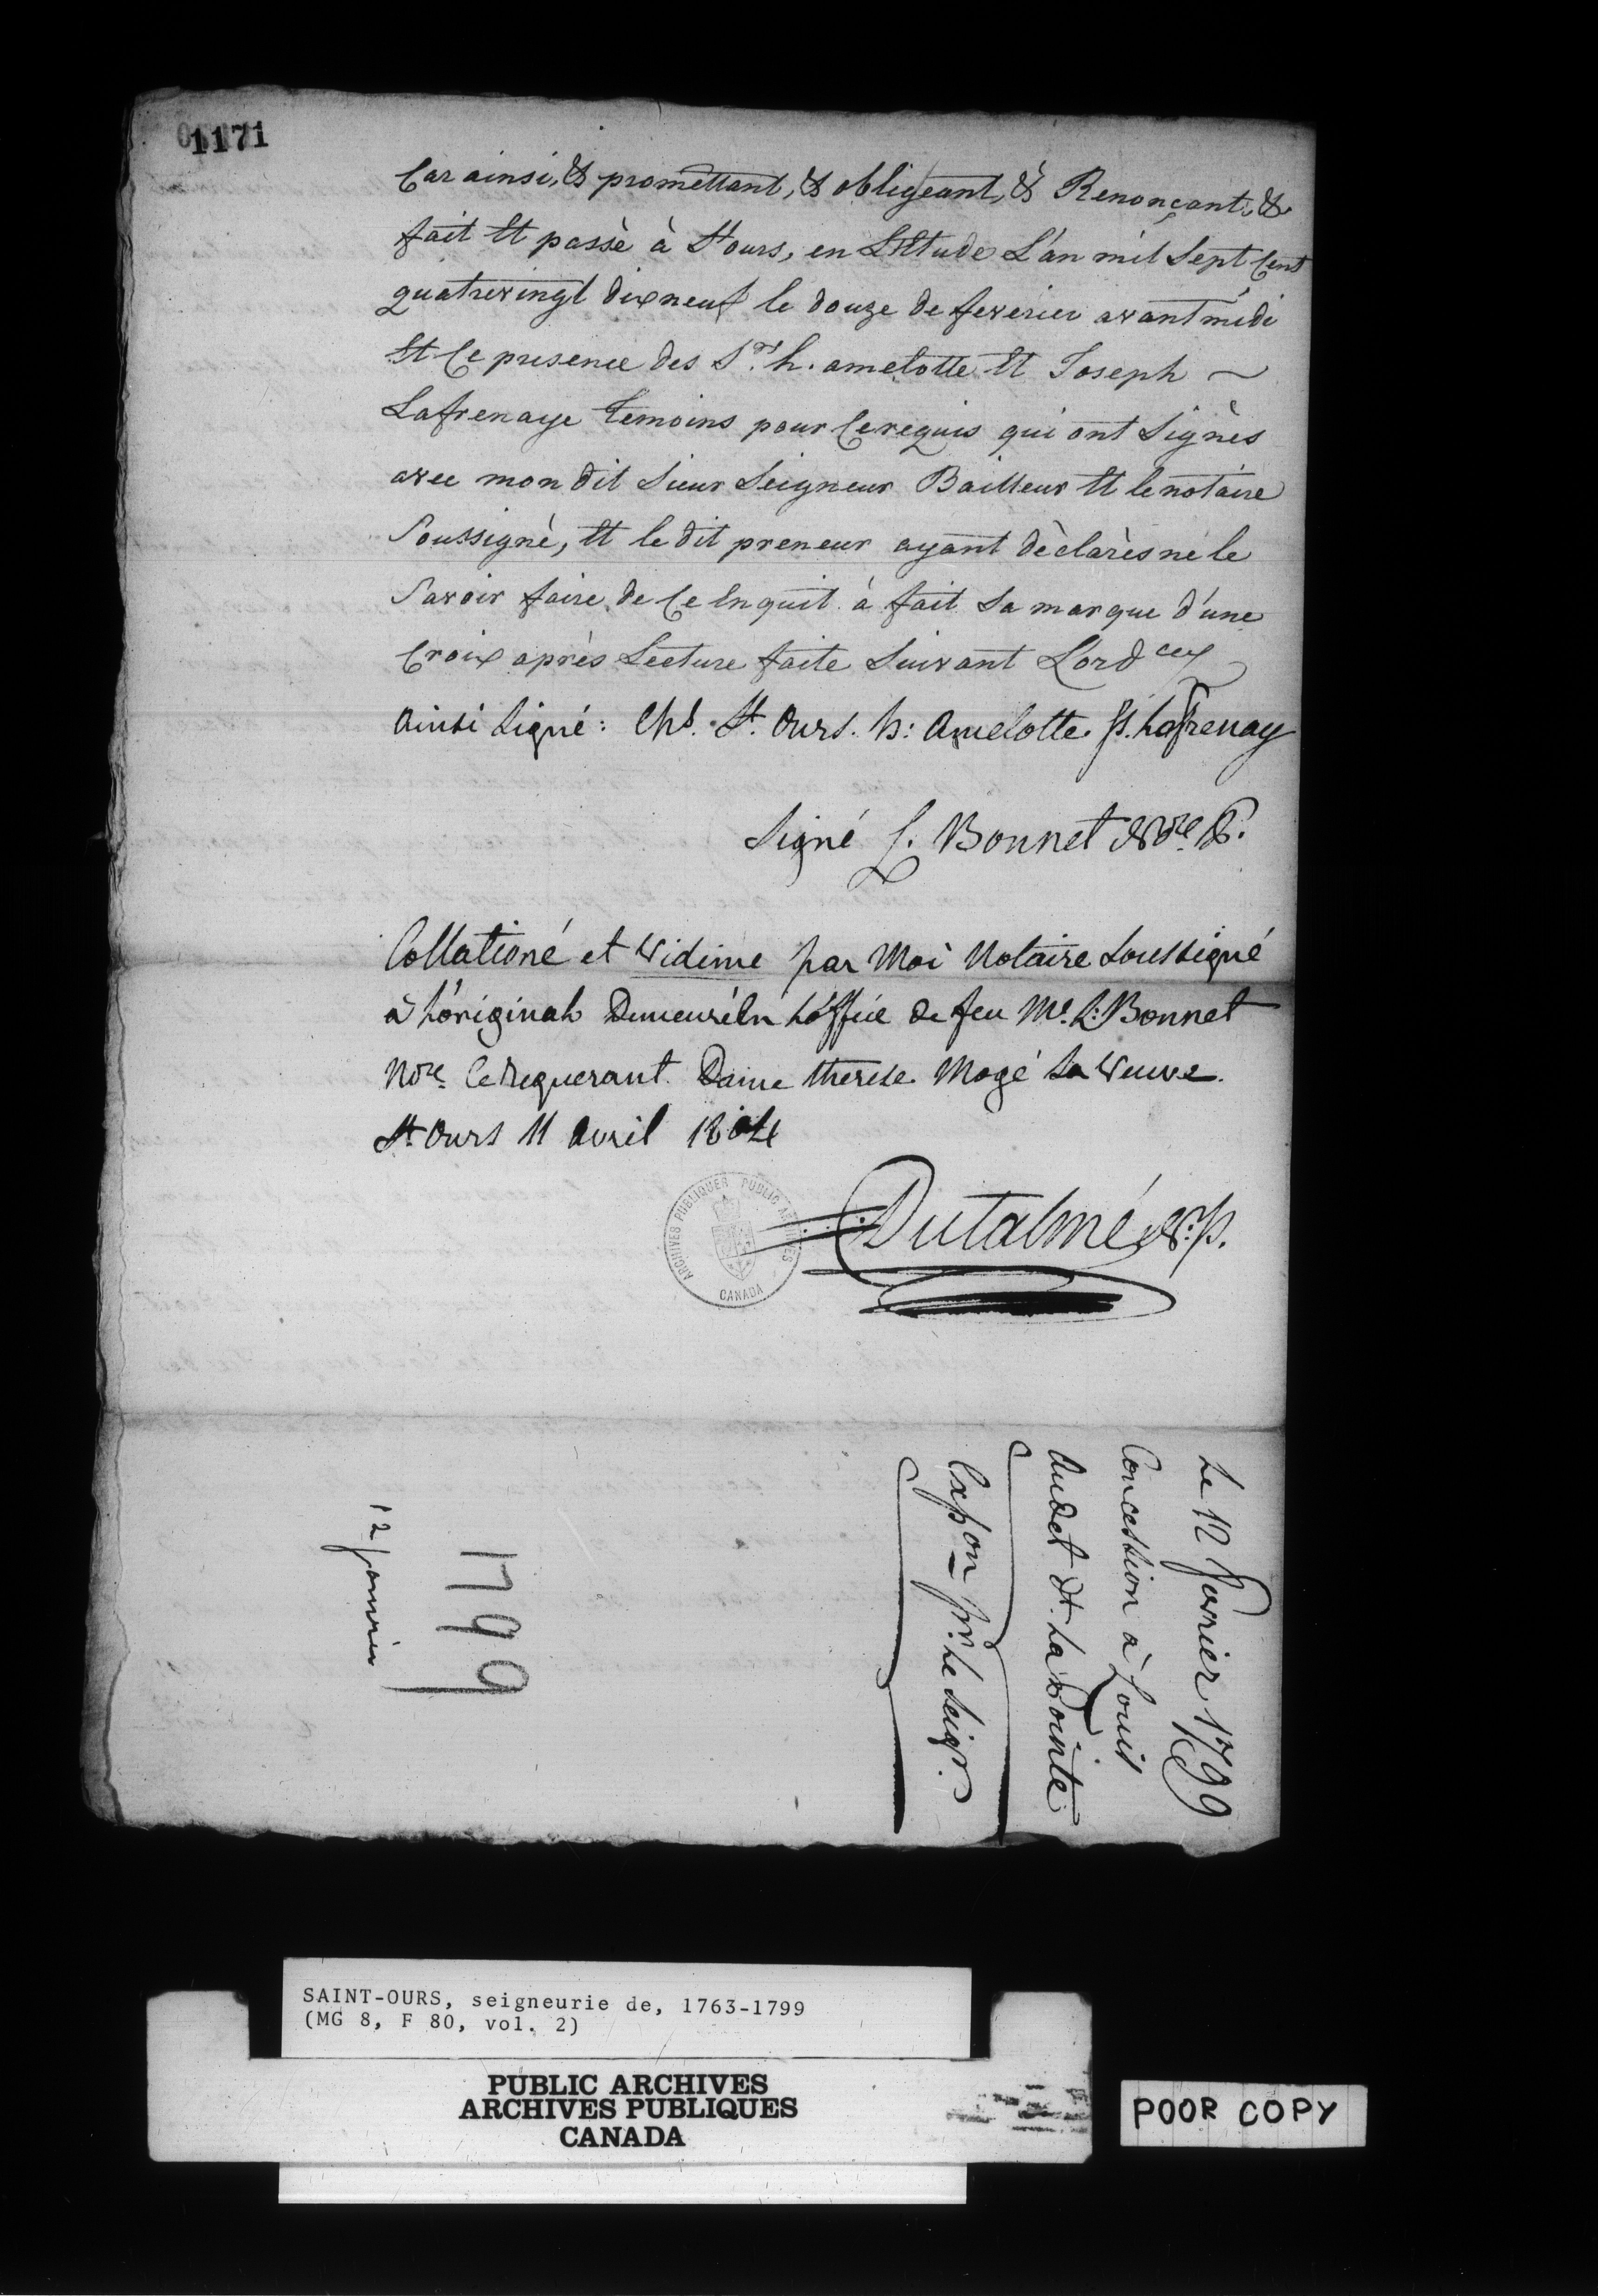 1171
Car ainsi, &c promettant, &c obligeant, &c Renonçant, &c
fait Et passè à St ours, en L'Etude L'an mil Sept Cent
quatrevingt dixneuf le douze de fevrier avant midi
Et Ce presence des Srs. h. amelotte Et Joseph ~
Lafrenaye temoins pour Ce requis qui ont Signès
avec mon dit Sieur Seigneur Bailleur Et le notaire
Soussigné, Et le dit preneur ayant dèclarès ne le
Savoir faire de Ce Enquit à fait Sa marque d'une
Croix après Lecture faite Suivant L'ord cex
Ainsi Signé: Chs. St. Ours. h: Amelotte. Js. Lafrenay
Signé L. Bonnet Nore P.
Collationé et Vidime par Moi Notaire Soussigné
à L'original Demeuré En L'office de feu Me. L: Bonnet
Nore. Ce Requerant Dame therese Mogé Sa Veuve.
St Ours 11 Avril 1804
Dutalmé N.p.
ARCHIVES PUBLIQUES PUBLIC ARCHIVES
CANADA
Le 12 fevrier 1799
Concession à Louis
Audet dt. La Pointe
Expon pr. Le Seigr.
1799
12 janvier
SAINT-OURS, seigneurie de, 1763-1799
(MG 8, F 80, vol. 2)
PUBLIC ARCHIVES
ARCHIVES PUBLIQUES
CANADA
POOR COPY